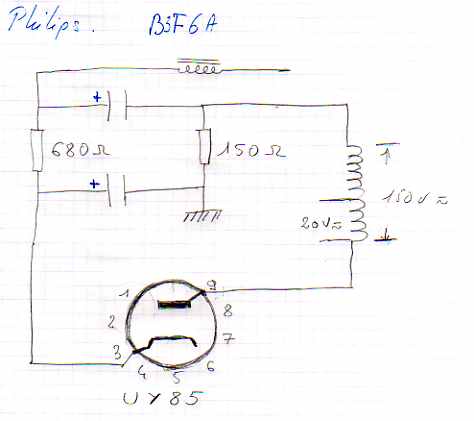 Philips. B3F6A
+
680Ω 150Ω
+
150V≈
20V≈
1 9
2 8
3 7
4 5 6
UY85